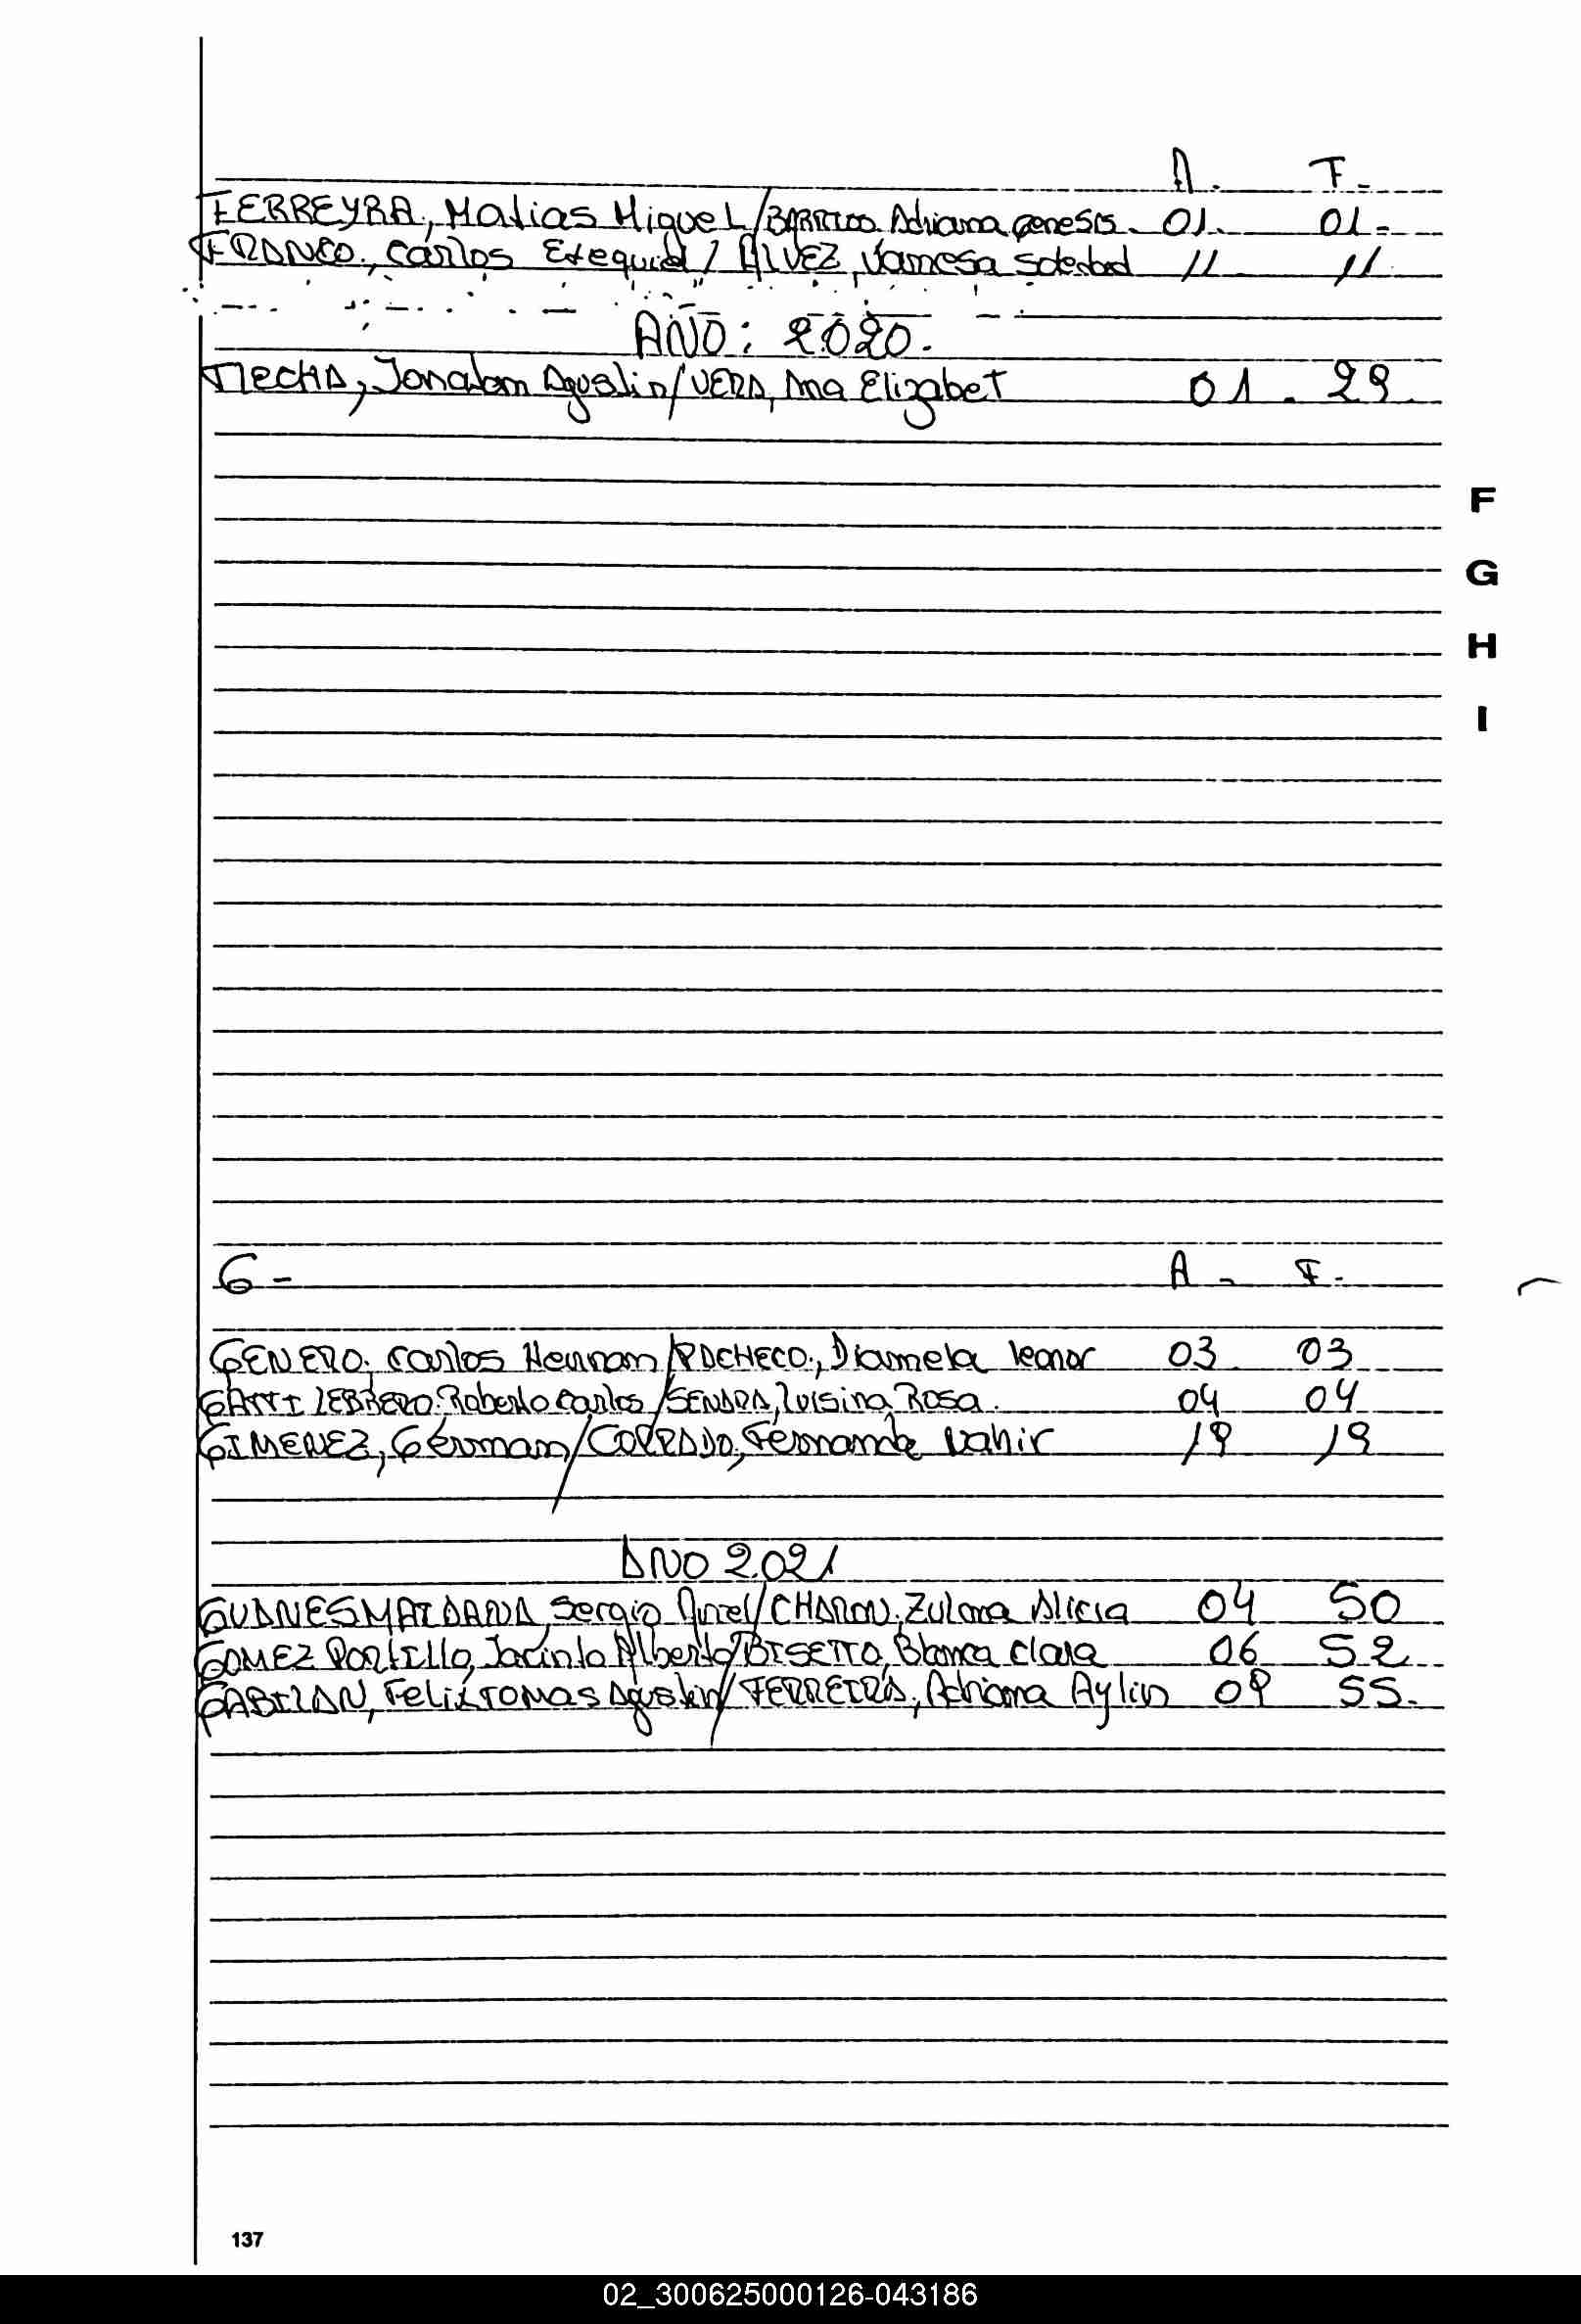 A. F.
FERREYRA, Matias Miguel / Adriana genesis. 01. 01.-
FRANCO, Carlos Exequiel / ALVEZ, Vanesa Soledad 11 11
AÑO: 2020.
Jonatan Agustin / VERA, Ana Elizabet 01. 29
F
G
H
I
G - A - F.
GENERO, Carlos Hernan / PACHECO, Diamela leonor 03 03
GATTI LEBRERO, Roberto Carlos / SENDRA, luisina Rosa. 04 04
GIMENEZ, German / Fernanda Nahir 19 19
AÑO 2021
Sergio / Zulma Alicia 04 50
GOMEZ PORTILLO, Jacinto Alberto / BISETTO, Blanca Clara 06 52
GABILAN, Felix TOMAS Agustin / FERREIRA, Adriana Aylin 09 55.
137
02_300625000126-043186